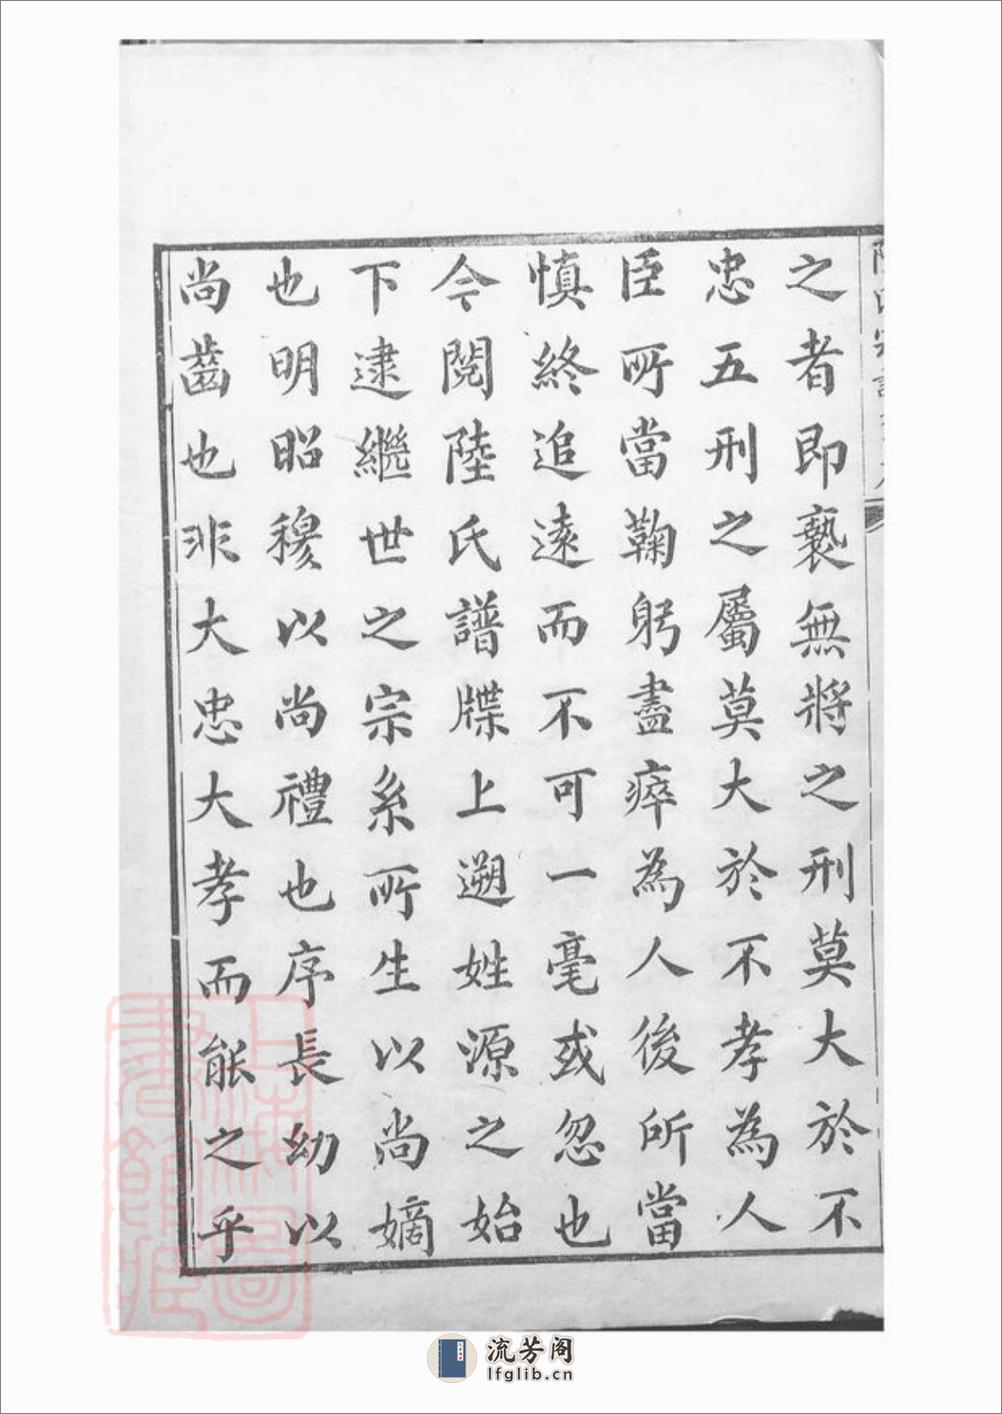 之者即褻無將之刑莫大於不
忠五刑之屬莫大於不孝為人
臣所當鞠躬盡瘁為人後所當
慎終追遠而不可一毫或忽也
今閱陸氏譜牒上遡姓源之始
下逮繼世之宗系所生以尚嫡
也明昭穆以尚禮也序長幼以
尚齒也非大忠大孝而能之乎
上海圖書館藏
流芳阁
lfglib.cn